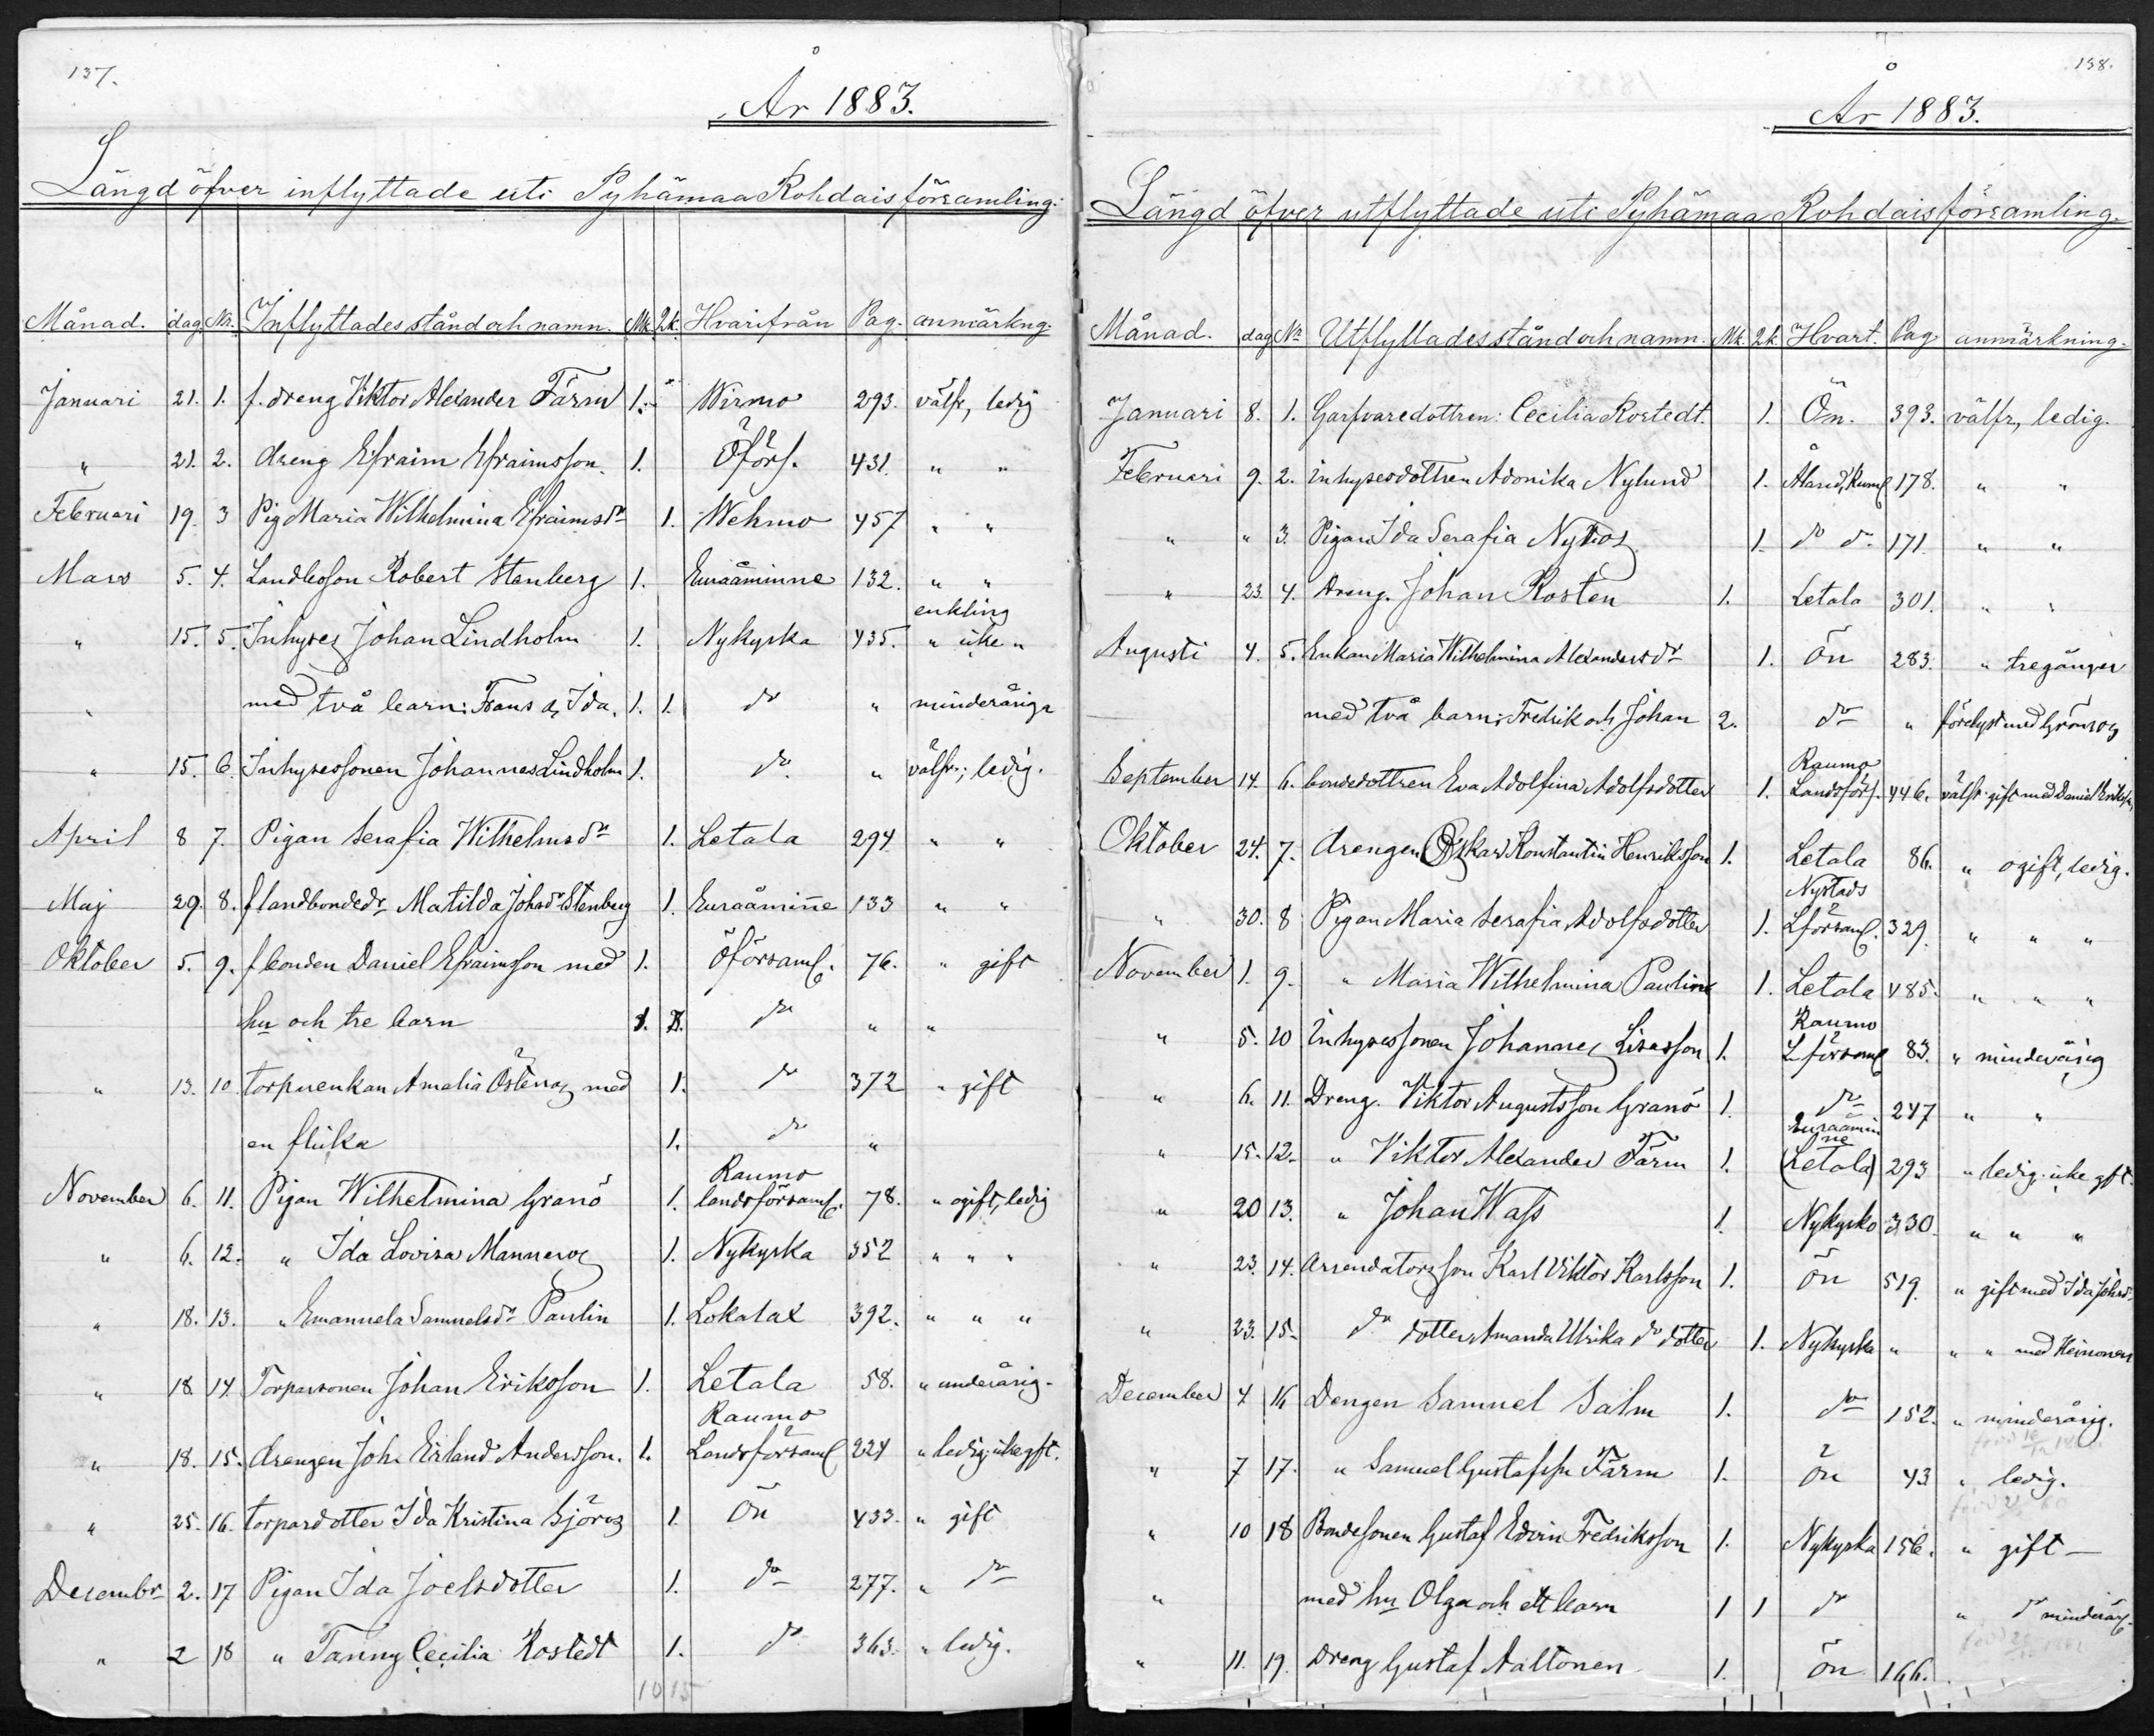 137.
År 1883.
Längd öfver inflyttade uti Pyhämaa Rohdais församling.
Månad. dag. Nr. Inflyttades stånd och namn. Mk. Qk. Hvarifrån Pag. anmärkng.
Januari 21. 1. f. dreng Viktor Alexander Färm 1. Wirmo 293. välfr, ledig
" 21. 2. dreng Efraim Efraimsson. 1. Öförs. 431. " "
Februari 19. 3 Pig Maria Wilhelmina Efraimsdr 1. Wehmo 457 " "
Mars 5. 4. Landboson Robert Stenberg 1. Euraåminne 132. " "
enkling
" 15. 5. Inhyses Johan Lindholm 1. Nykyrka 435. " icke "
" med två barn: Frans o, Ida. 1. 1. dr " minderåriga
" 15. 6. Inhysessonen Johannes Lindholm 1. dr. " välfr.; ledig.
April 8 7. Pigan Serafia Wilhelmsdr 1. Letala 294 " "
Maj 29. 8. f landbondedr Matilda Johsdr Stenberg 1. Euraåmine 133 " "
Oktober 5. 9. f bonden Daniel Efraimsson med 1. Öförsaml. 76. " gift
hu och tre barn 1. dr " "
" 13. 10. torpareenkan Amalia Östenros med 1. dr 372 " gift
en flicka 1. dr "
Raumo
November 6. 11. Pigan Wilhelmina Granö 1. landsförsaml. 78. " ogift, ledig
" 6. 12. " Ida Lovisa Manneros 1. Nykyrka 352 " " "
" 18. 13. " Emanuela Samuelsdr Paulin 1. Lokalax 392. " " "
" 18. 14. Torparsonen Johan Eriksson 1. Letala 58. " underårig.
Raumo
" 18. 15. drengen Joh. Erland Andersson. 1. Landsförsaml 224 " ledig; icke gft.
" 25. 16. torpardotter Ida Kristina Sjöros 1. Ön 433. " gift
Decembr 2. 17 Pigan Ida Joelsdotter 1. dr 277. " dr
" 2 18 " Fanny Cecilia Rostedt 1. dr 363. " ledig.
10 15
138.
År 1883.
Längd öfver utflyttade uti Pyhämaa Rohdais församling.
Månad. dag Nr Utflyttades stånd och namn. Mk. Qk. Hvart. Pag anmärkning.
Januari 8. 1. Garfvaredottren: Cecilia Rostedt. 1. Ön. 393. välfr, ledig.
Februari 9. 2. inhysesdottren Adonika Nylund 1. Åland, Kuml 178. " "
" " 3. Pigan Ida Serafia Nyroos 1. dr dr. 171. " "
" 23. 4. dreng. Johan Rosten 1. Letala 301. " "
Augusti 4. 5. Enkan Maria Wilhelmina Alexandersdr 1. Ön 283. " tregånger
med två barn: Fredrik och Johan 2. dr " förelyst med Grönroos
Raumo
September 14. 6. bondedottren Eva Adolfina Adolfsdotter 1. Landsförs. 446. välfr. gift med Daniel Eriksn,
Oktober 24. 7. drengen Oskar Konstantin Henriksson 1. Letala 86. " ogift, ledig.
Nystads
" 30. 8 Pigan Maria Serafia Adolfsdotter 1. Lförsaml. 329. " " "
November 1. 9. " Maria Wilhelmina Paulin 1. Letala 485. " " "
Raumo
" 5. 10 Inhysessonen Johannes Lisasson 1. Lförsaml 83. " minderårig
" 6. 11. Dreng. Viktor Augustsson Granö 1. dr 247 " "
Euraåminne
" 15. 12. " Viktor Alexander Färm 1. (Letala) 293 " ledig. icke gft.
" 20 13. " Johan Wass 1. Nykyrko 330. " " "
" 23. 14. Arrendatorsson Karl Viktor Karlsson 1. Ön 519. " gift med Ida Johsdr
" 23. 15. dr dotter Amanda Ulrika dr dotter 1. Nykyrka " " " med Heinonen
December 4 16 Dengen Samuel Salm 1. dr 152. " minderårig.
" 7 17. " Samuel Gustafssn Färm 1. Ön 43 " ledig.
" 10 18 Bondesonen Gustaf Edvin Fredriksson 1. Nykyrka 156. " gift —
" med hu Olga och ett barn 1 1 dr " dr minderår.
" 11. 19. Dreng Gustaf Aaltonen 1. Ön 166.